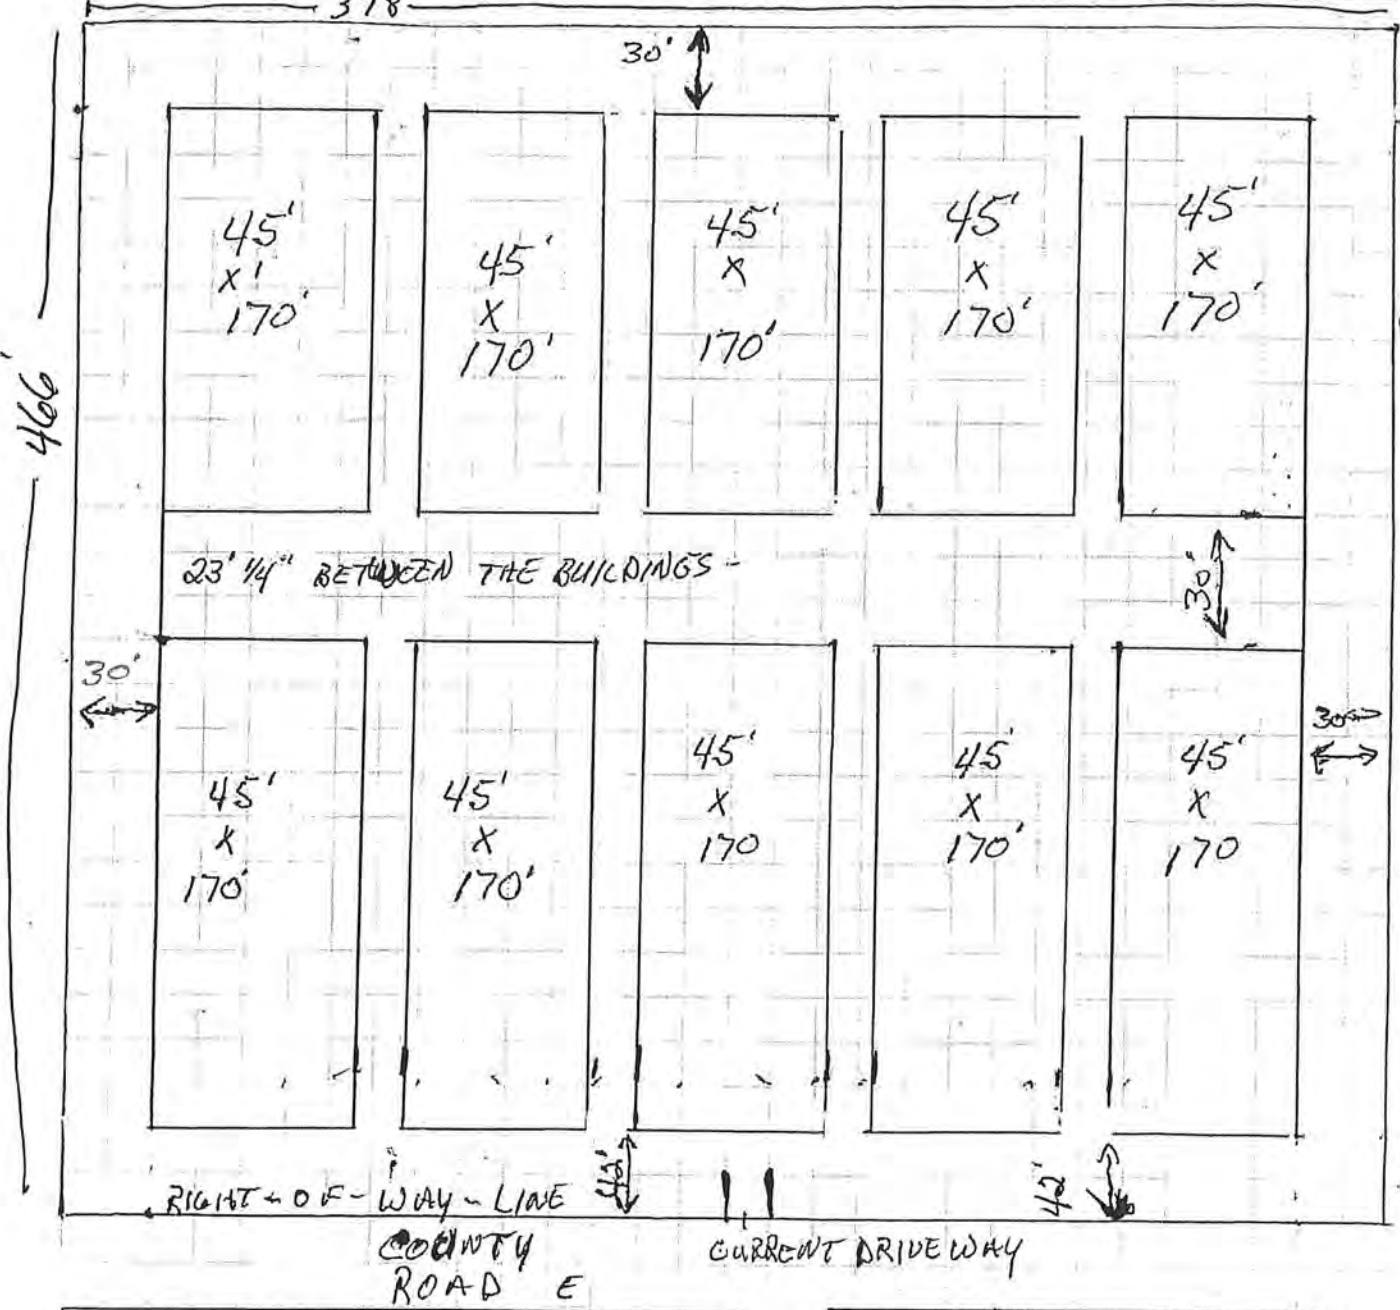 378
30'
466'
45'
x'
170'
45'
x
170'
45'
x
170'
45'
x
170'
45'
x
170'
23' 1/4" BETWEEN THE BUILDINGS -
30'
30'
30
45'
x
170'
45'
x
170'
45'
x
170
45'
x
170'
45'
x
170
42'
42'
RIGHT - OF - WAY - LINE
COUNTY
ROAD E
CURRENT DRIVEWAY